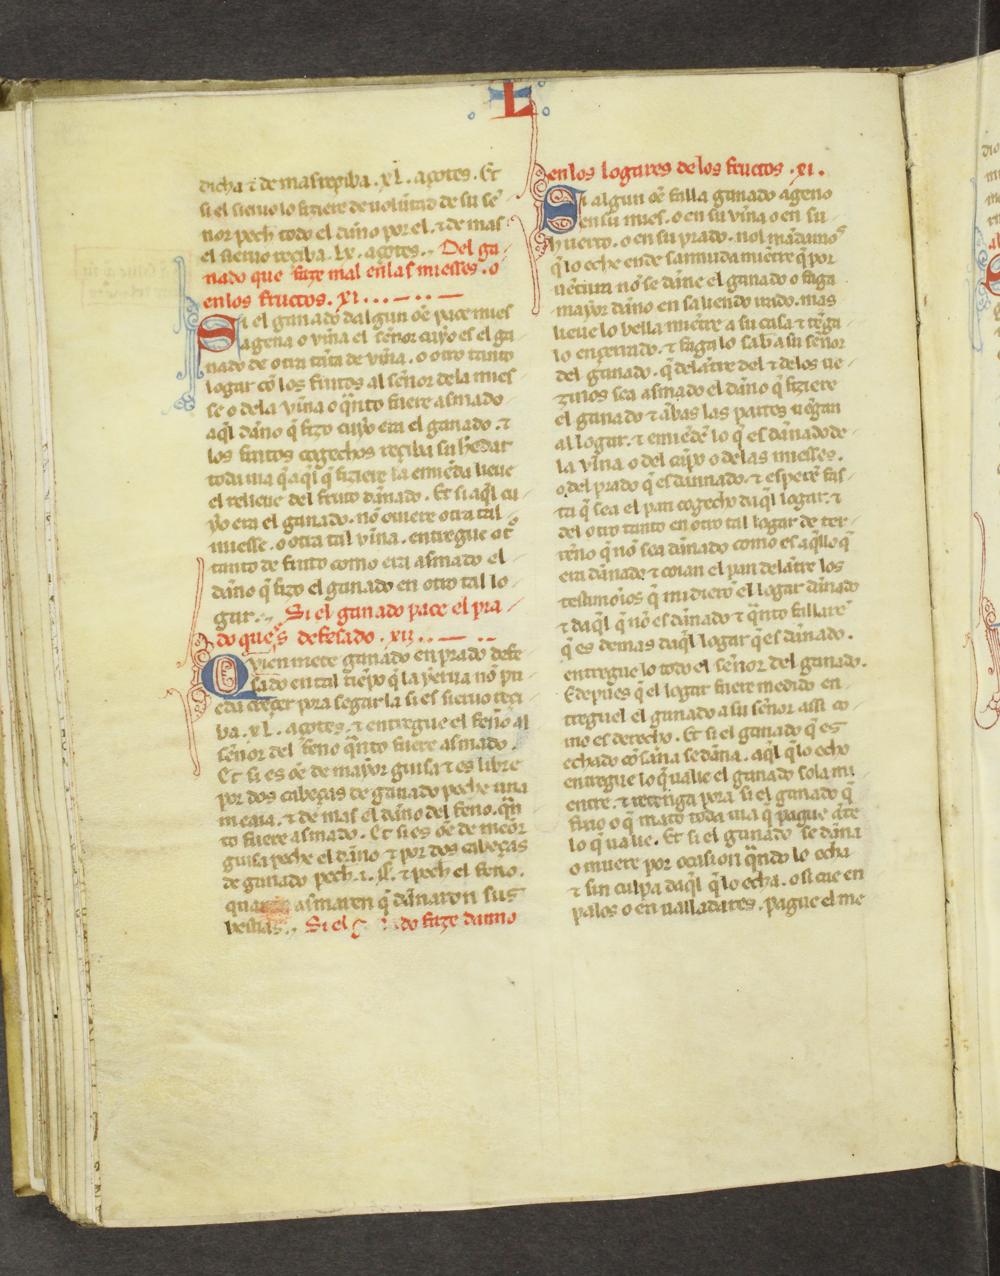 L
dicha ⁊ de mas reçiba .xl. açotes. Et
si el sieruo lo fiziere de uolũtad de su se
nor peche todo el dãno por el. ⁊ de mas
el sieruo reçiba .lx. açotes. Del ga
nado que faze mal en las miesses. o
en los fructos. xi.
Si el ganado dalgun oẽ pace mies
agena o viña el señor cuyo es el ga
nado de otra tãta de viña. o otro tanto
logar cõ los fruttos al señor dela mies
se o dela viña o q̃nto fuere asmado
aq̃l dãno q̃ fizo cuyo era el ganado. ⁊
los fruttos cogechos reçiba su hedat
toda uia q̃ aq̃l q̃ fiziere la emẽda lieue
el relieue del fruto dãnado. Et si aq̃l cu
yo era el ganado. nõ ouiere otra tal
miesse. o otra tal viña. entregue ot̃
tanto de fruto como era asmado el
dãno q̃ fizo el ganado en otro tal lo
gar. Si el ganado pace el pra
do que's defesado. xii.
Qvien mete ganado en prado defe
sado en tal tiẽpo q̃ la yerua nõ pu
eda creçer pora segar la si es sieruo reçi
ba .xl. açotes. ⁊ entregue el feno al
señor del feno q̃nto fuere asmado.
Et si es oẽ de mayor guisa ⁊ es libre
por dos cabeças de ganado peche una
meaia. ⁊ de mas el dãno del feno. q̃n
to fuere asmado. Et si es oẽ de meor
guisa peche el dãno ⁊ por dos cabeças
de ganado pech .i. ⁊ pech el feno.
asmaren q̃ dãnaron sus
bestias. Si el do faze danno
en los logares de los fructos .xi.
Si algun oẽ falla ganado ageno
en su mies. o en su viña o en su
huerto. o en su prado. nol mãdamos
q̃ lo eche ende sannuda miẽtre q̃ por
uẽtura nõ se dãne el ganado o faga
mayor dãno en saliendo uiado. mas
lieue lo bella miẽtre a su casa ⁊ tẽga
lo ençerrado. ⁊ faga lo saƀ a su señor
del ganado. q̃ delãtre del ⁊ delos ue
zinos sea asmado el dãno q̃ fiziere
el ganado ⁊ ãbas las partes uẽgan
al logar. ⁊ emiẽdẽ lo q̃ es dãnado de
la viña o del cãpo o de las miesses.
o del prado q̃ es dannado. ⁊ esperẽ fas
ta q̃ sea el pan cogecho daq̃l logar. ⁊
del otro tanto en otro tal logar de ter
reno q̃ nõ sea dãnado como es aq̃llo q̃
era dãnado ⁊ coian el pan delãtre los
testimonios q̃ midierõ el logar dãnado
⁊ daq̃l q̃ nõ es dãnado ⁊ q̃nto fallarẽ
q̃ es demas daq̃l logar q̃ es dãnado.
entregue lo todo el señor del ganado.
E depues q̃ el logar fuere medido en
treguel el ganado a su señor assi co
mo es derecho. Et si el ganado q̃ es
echado cõ sãna se dãna. aq̃l q̃ lo echo
entregue lo q̃ ualie el ganado sola mi
entre. ⁊ retenga pora si el ganado q̃
firio o q̃ mato toda uia q̃ pague ãte
lo q̃ ualie. Et si el ganado se dãna
o muere por ocasion q̃ndo lo echa
⁊ sin culpa daq̃l q̃ lo echa. o si cae en
palos o en ualladares. pague el me